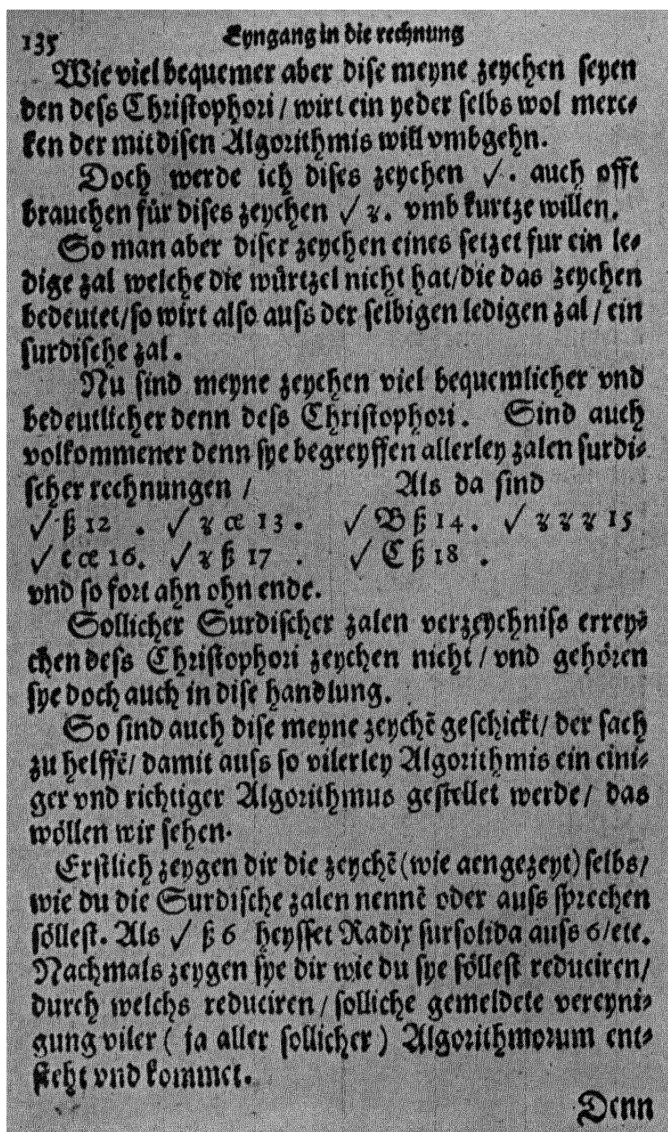 135 Eyngang in die rechnung
Wie viel bequemer aber dise meyne zeychen seyen
den dess Christophori / wirt ein yeder selbs wol merc⸗
ken der mit disen Algorithmis will vmbgehn.
Doch werde ich dises zeychen √. auch offt
brauchen für dises zeychen √ ʒ. vmb kurtze willen.
So man aber diser zeychen eines setzet fur ein le⸗
dige zal welche die würtzel nicht hat/die das zeychen
bedeutet/so wirt also auss der selbigen ledigen zal / ein
surdische zal.
Nu sind meyne zeychen viel bequemlicher vnd
bedeutlicher denn dess Christophori. Sind auch
volkommener denn sye begreyffen allerley zalen surdi⸗
scher rechnungen / Als da sind
√ ß 12 . √ ʒ cͤ 13 . √ B ß 14. √ ʒ ʒ ʒ 15
√ c cͤ 16. √ ʒ ß 17 . √ C ß 18 .
vnd so fort ahn ohn ende.
Sollicher Surdischer zalen verzeychniss errey⸗
chen dess Christophori zeychen nicht / vnd gehören
sye doch auch in dise handlung.
So sind auch dise meyne zeychẽ geschickt/ der sach
zu helffẽ/ damit auss so vilerley Algorithmis ein eini⸗
ger vnd richtiger Algorithmus gestellet werde / das
wöllen wir sehen.
Erstlich zeygen dir die zeychẽ (wie aengezeyt) selbs/
wie du die Surdische zalen nennẽ oder auss sprechen
söllest. Als √ ß 6 heysset Radix sursolida auss 6/etc.
Nachmals zeygen sye dir wie du sye söllest reduciren/
durch welchs reduciren / solliche gemeldete vereyni⸗
gung viler ( ja aller sollicher ) Algorithmorum ent⸗
steht vnd kommet.
Denn